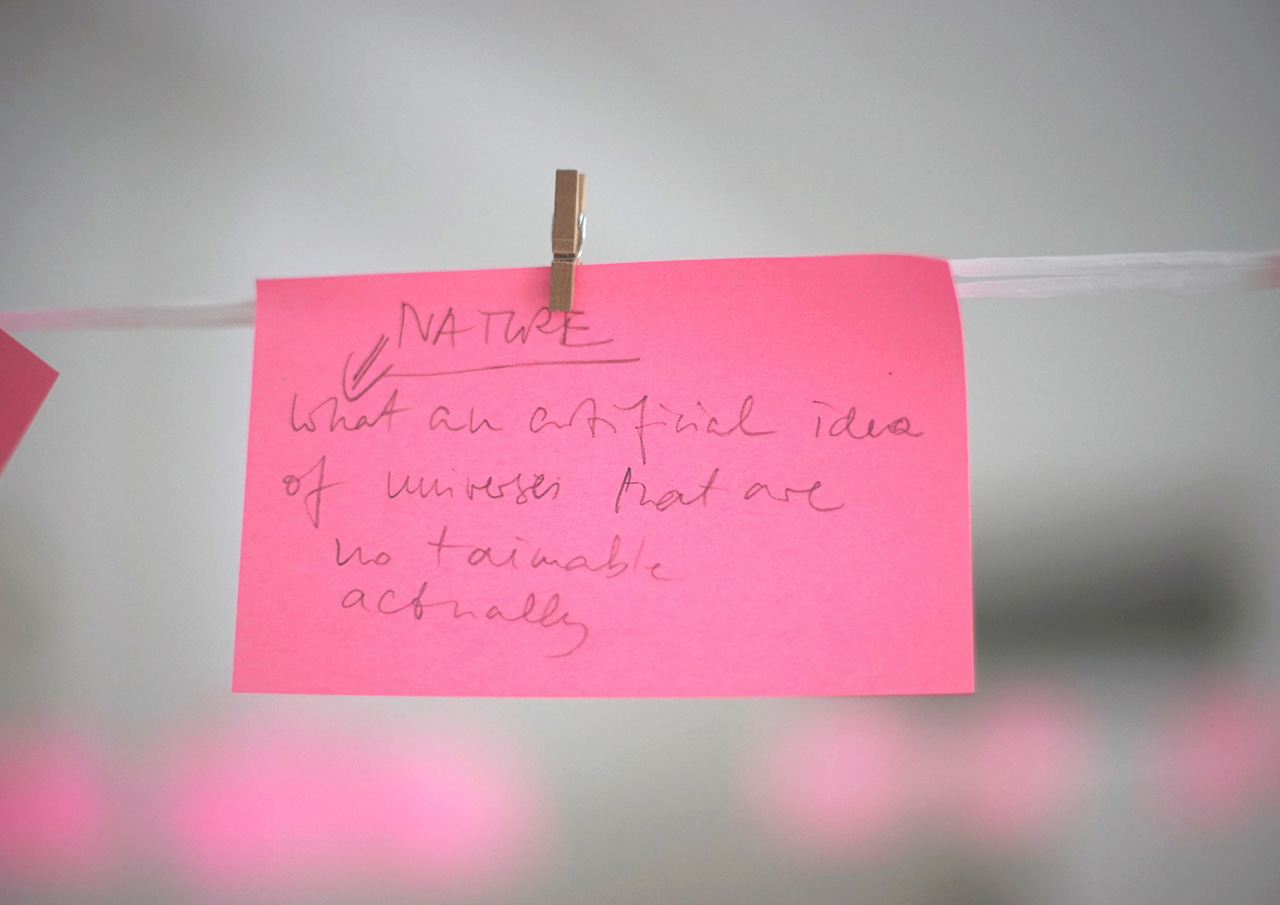 NATURE
What an artificial idea
of universes that are
no taimable
actually